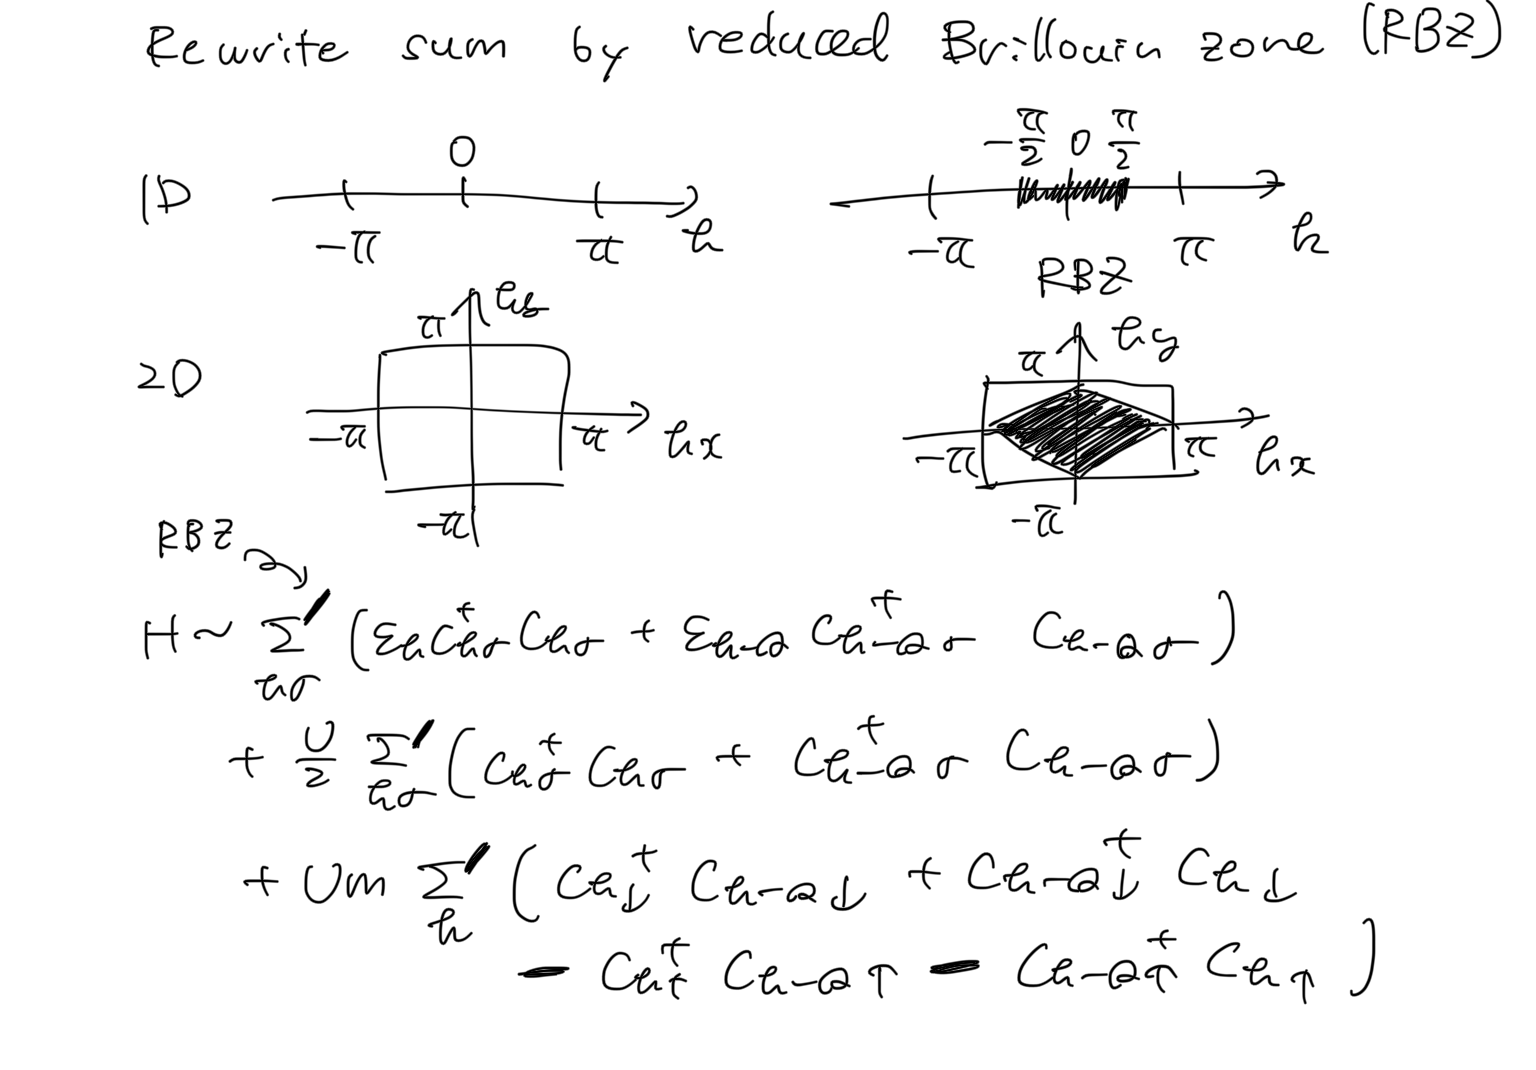 Rewrite sum by reduced Brillouin zone (RBZ)
1D
0
-π π k
-π/2 0 π/2
-π π k
RBZ
2D
ky
π
-π π kx
-π
ky
π
-π π kx
-π
RBZ
H ~ Σ'_{kσ} (ε_k c†_{kσ} c_{kσ} + ε_{k-Q} c†_{k-Qσ} c_{k-Qσ})
+ U/2 Σ'_{kσ} (c†_{kσ} c_{kσ} + c†_{k-Qσ} c_{k-Qσ})
+ Um Σ'_k (c†_{k↓} c_{k-Q↓} + c†_{k-Q↓} c_{k↓}
- c†_{k↑} c_{k-Q↑} - c†_{k-Q↑} c_{k↑})